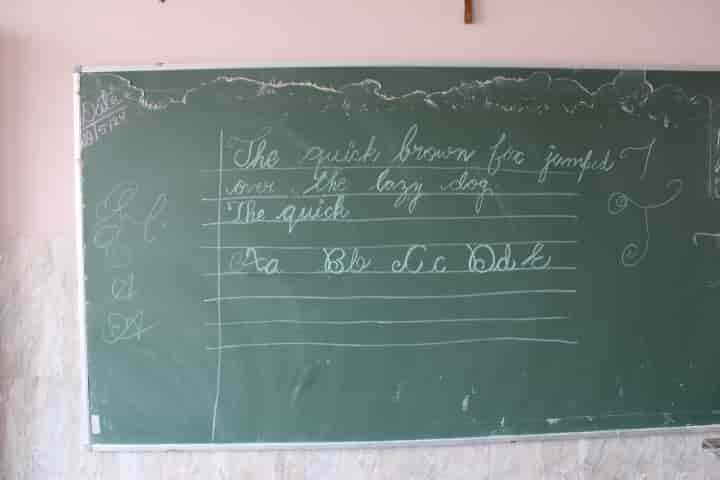 Date
The quick brown fox jumped
over the lazy dog
The quick
Aa Bb Cc Dd